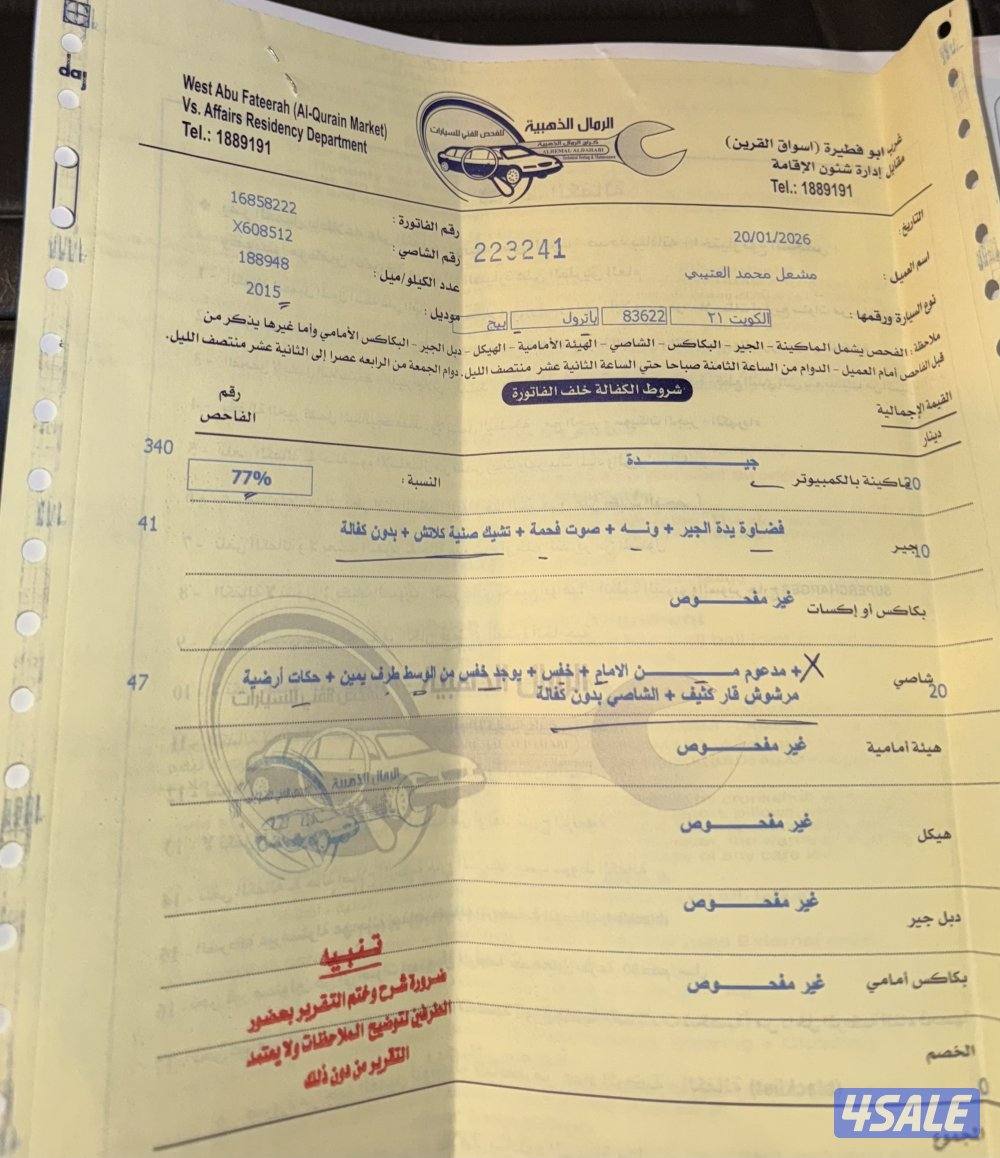 West Abu Fateerah (Al-Qurain Market)
Vs. Affairs Residency Department
Tel.: 1889191
للفحص الفني للسيارات
الرمال الذهبية
كراج الرمال الذهبية
ALREMAL ALDAHABI
Technical Testing & Maintenance
غرب ابو فطيرة (اسواق القرين)
مقابل إدارة شئون الإقامة
Tel.: 1889191
التاريخ:
20/01/2026
رقم الفاتورة:
16858222
اسم العميل:
مشعل محمد العتيبي
223241
رقم الشاصي:
X608512
عدد الكيلو/ميل:
188948
نوع السيارة ورقمها:
الكويت ٢١
83622
باترول
بيج
موديل:
2015
ملاحظة: الفحص يشمل الماكينة - الجير - البكاكس - الشاصي - الهيئة الأمامية - الهيكل - دبل الجير - البكاكس الأمامي وأما غيرها يذكر من
قبل الفاحص أمام العميل - الدوام من الساعة الثامنة صباحا حتي الساعة الثانية عشر منتصف الليل، دوام الجمعة من الرابعه عصرا إلى الثانية عشر منتصف الليل.
شروط الكفالة خلف الفاتورة
القيمة الإجمالية
دينار
رقم
الفاحص
20
ماكينة بالكمبيوتر
جيدة
النسبة:
77%
340
10
جير
فضاوة يدة الجير + ونه + صوت فحمة + تشيك صنية كلاتش + بدون كفالة
41
بكاكس أو إكسات
غير مفحوص
20
شاصي
X + مدعوم من الامام + خفس + يوجد خفس من الوسط طرف يمين + حكات أرضية
مرشوش قار كثيف + الشاصي بدون كفالة
47
هيئة أمامية
غير مفحوص
هيكل
غير مفحوص
دبل جير
غير مفحوص
بكاكس أمامي
غير مفحوص
الخصم
0
المجموع
تنبيه
ضرورة شرح وختم التقرير بحضور
الطرفين لتوضيح الملاحظات ولا يعتمد
التقرير من دون ذلك
4SALE